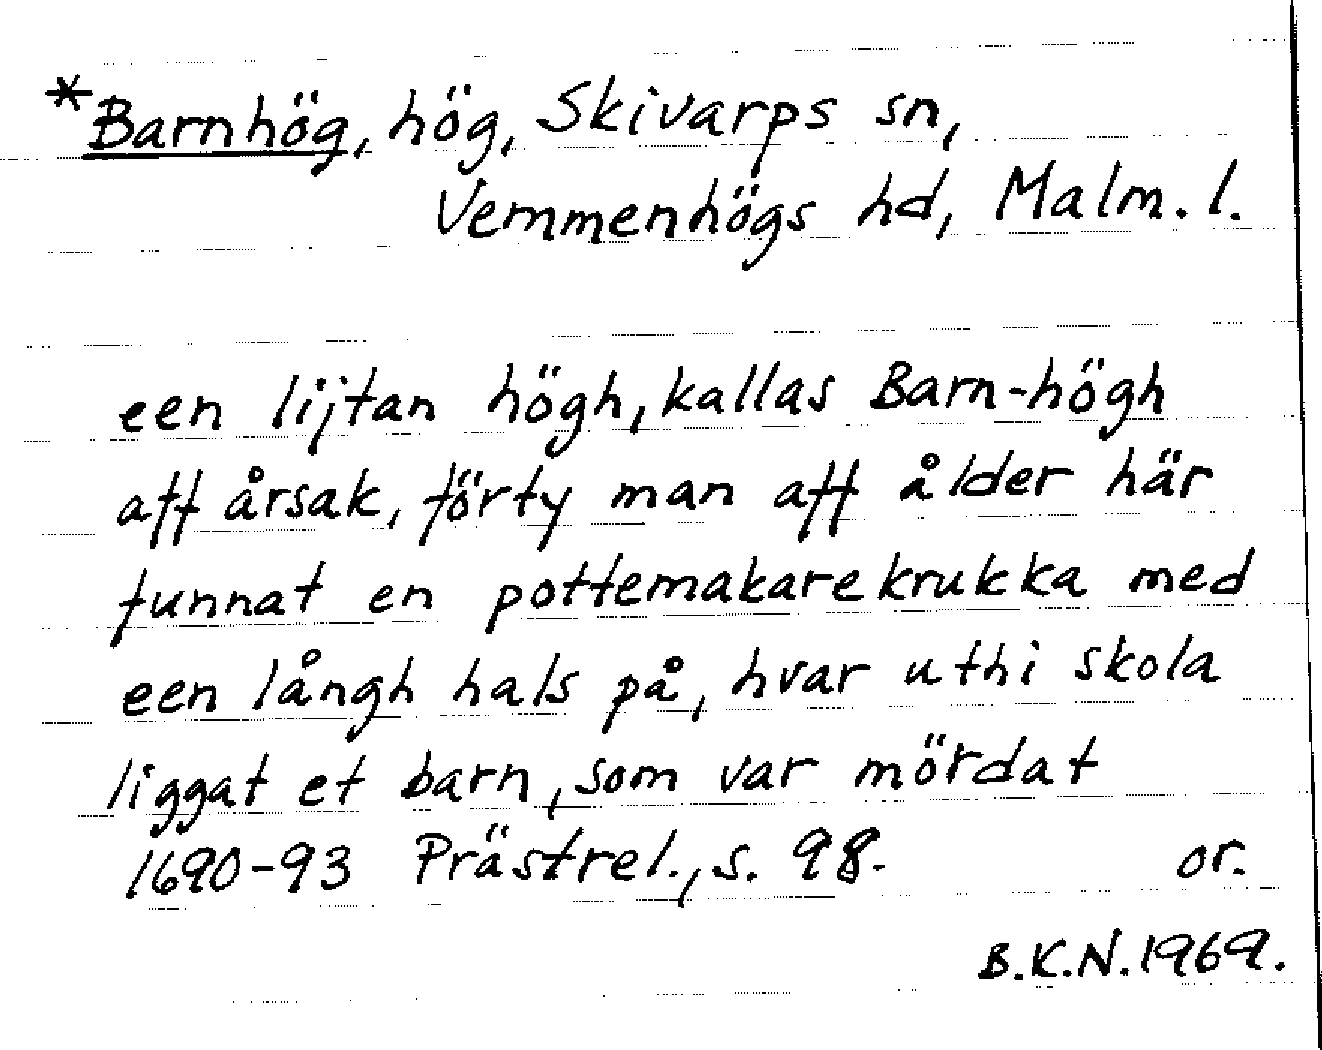 *Barnhög, hög, Skivarps sn,
Vemmenhögs hd, Malm. l.
een lijtan högh, kallas Barn-högh
aff årsak, förty man aff ålder här
funnat en pottemakarekrukka med
een långh hals på, hvar uthi skola
liggat et barn, som var mördat
1690-93 Prästrel., s. 98. or.
B.K.N. 1969.